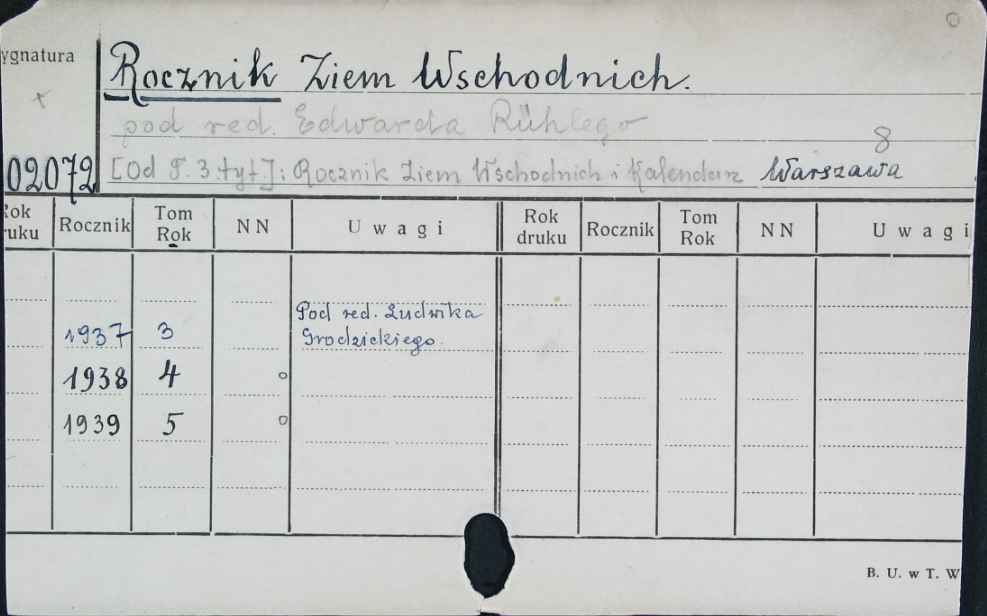 ygnatura
Rocznik Ziem Wschodnich.
pod red. Edwarda Rühlego
8
02072
[Od T. 3. tyt]: Rocznik Ziem Wschodnich i Kalendarz Warszawa
Rok druku Rocznik Tom Rok NN Uwagi Rok druku Rocznik Tom Rok NN Uwagi
1937 3 Pod red. Ludwika
Grodzickiego.
1938 4
1939 5
B. U. w T. W